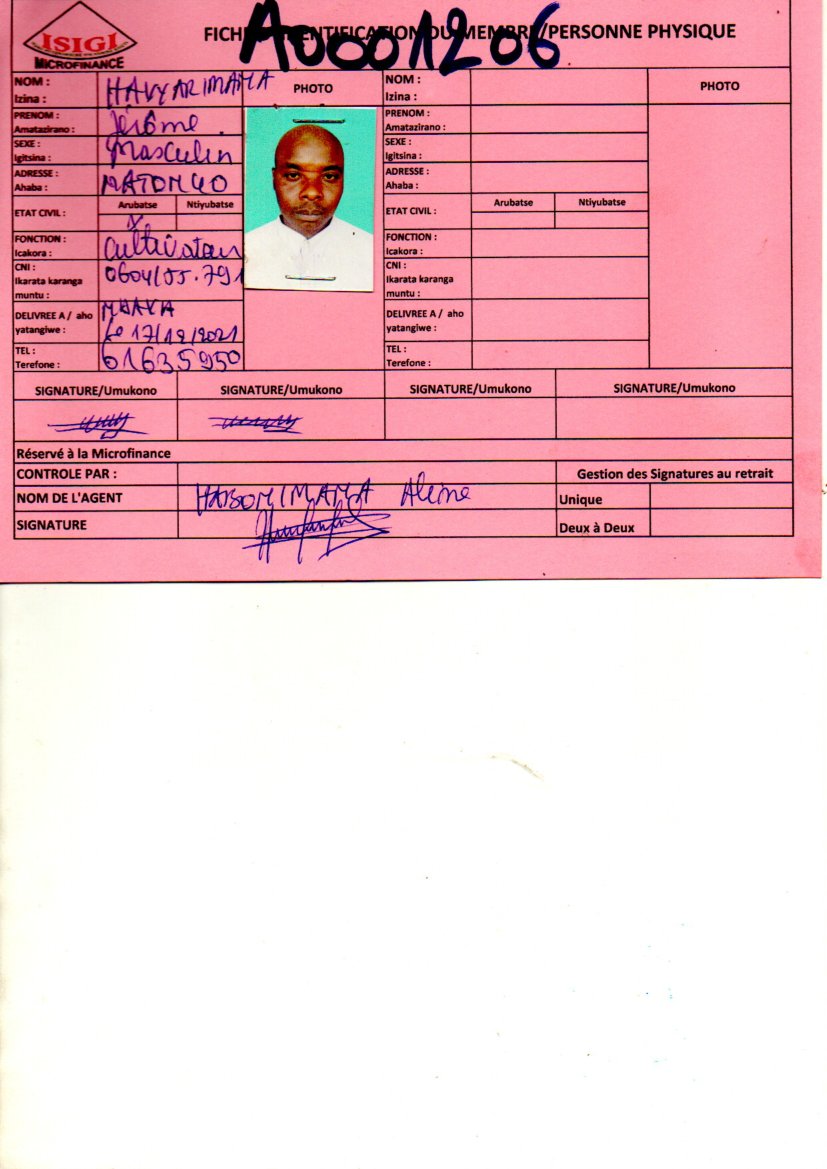 ISIGI
MICROFINANCE
FICHE D'IDENTIFICATION DU MEMBRE/PERSONNE PHYSIQUE
A00001206
NOM :
Izina :
HAVYARIMANA
PHOTO
NOM :
Izina :
PHOTO
PRENOM :
Amatazirano :
Jérôme
PRENOM :
Amatazirano :
SEXE :
Igitsina :
Masculin
SEXE :
Igitsina :
ADRESSE :
Ahaba :
MATONGO
ADRESSE :
Ahaba :
ETAT CIVIL :
Arubatse
Ntiyubatse
ETAT CIVIL :
Arubatse
Ntiyubatse
FONCTION :
Icakora :
Cultivateur
FONCTION :
Icakora :
CNI :
Ikarata karanga
muntu :
0604/55.791
CNI :
Ikarata karanga
muntu :
DELIVREE A / aho
yatangiwe :
le 17/12/2021
DELIVREE A / aho
yatangiwe :
TEL :
Terefone :
61635950
TEL :
Terefone :
SIGNATURE/Umukono
SIGNATURE/Umukono
SIGNATURE/Umukono
SIGNATURE/Umukono
Réservé à la Microfinance
CONTROLE PAR :
Gestion des Signatures au retrait
NOM DE L'AGENT
HABONIMANA Aline
Unique
SIGNATURE
Deux à Deux